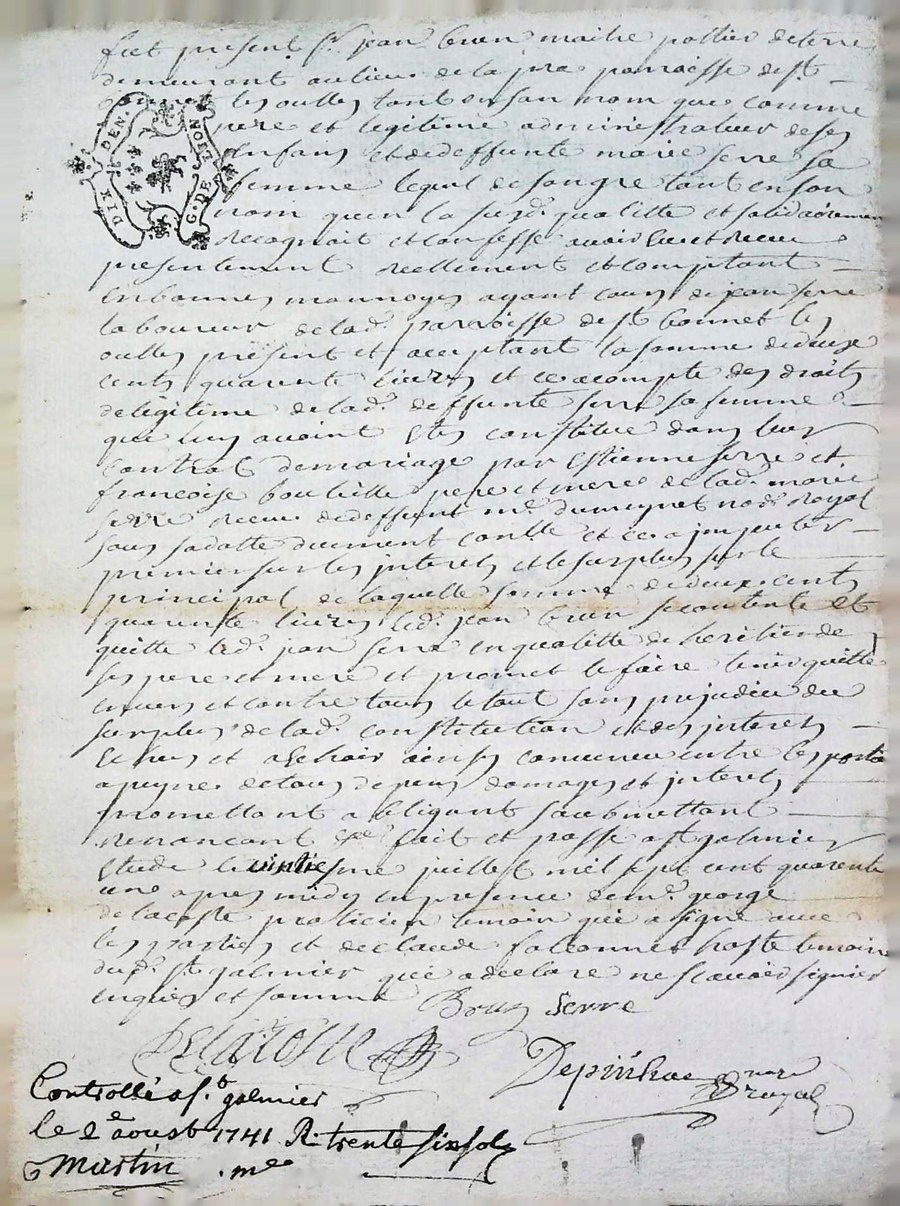 fut présent Sr jean brun maitre pottier de terre
demeurant au lieu de la parroisse de St
bonnet les oulles tant en son nom que comme
pere et legitime administrateur de ses
enfans et de deffunte marie serre sa
femme lequel de son gre tant en son
nom qu'en la susd. qualitte et solidairement
recognoit et confesse avoir heu et receu
presentement reellement et comptant
en bonnes monnoyes ayant cours de jean serre
laboureur de lad. parroisse de St bonnet les
oulles présent et acceptant la somme de deux
cents quarente livres et ce acompte des droits
de legitime de lad. deffunte serre sa femme
que luy avoint estes constitué dans leur
contrat de mariage par Estienne serre et
francoise bouteille pere et mere de lad. marie
serre receu de deffunt me dumeynet no.re royal
sous sa datte duement contlle et ce a imputer
premier sur les interets et le surplus sur le
principal de laquelle somme de deux cents
quarente livres led. jean brun se contente et
quitte led. jean serre en qualitte de heritier de
ses pere et mere et promet le faire tenir quitte
envers et contre tous le tout sans prejudice du
surplus de lad. constitution et des interets
Echeus et a Echoir ainsy convenu entre les partie
a peyne de tous depens domages et interets
promettant obligeant soubmettant
renoncant &c fait et passé a St galmier
Etude le vintiesme juillet mil sept cent quarente
une apres midy en presence de mr. george
delacoste praticien temoin qui a signé avec
les parties et de claude falconnet hoste temoin
dud. St galmier qui a declaré ne scavoir signer
enquis et sommé Brun Serre
DELACOSTE
Depinhac nore royal
DIX DEN. G. DE LION
Controllé a St galmier
le 2e aoust 1741 R. trente six sols
Martin